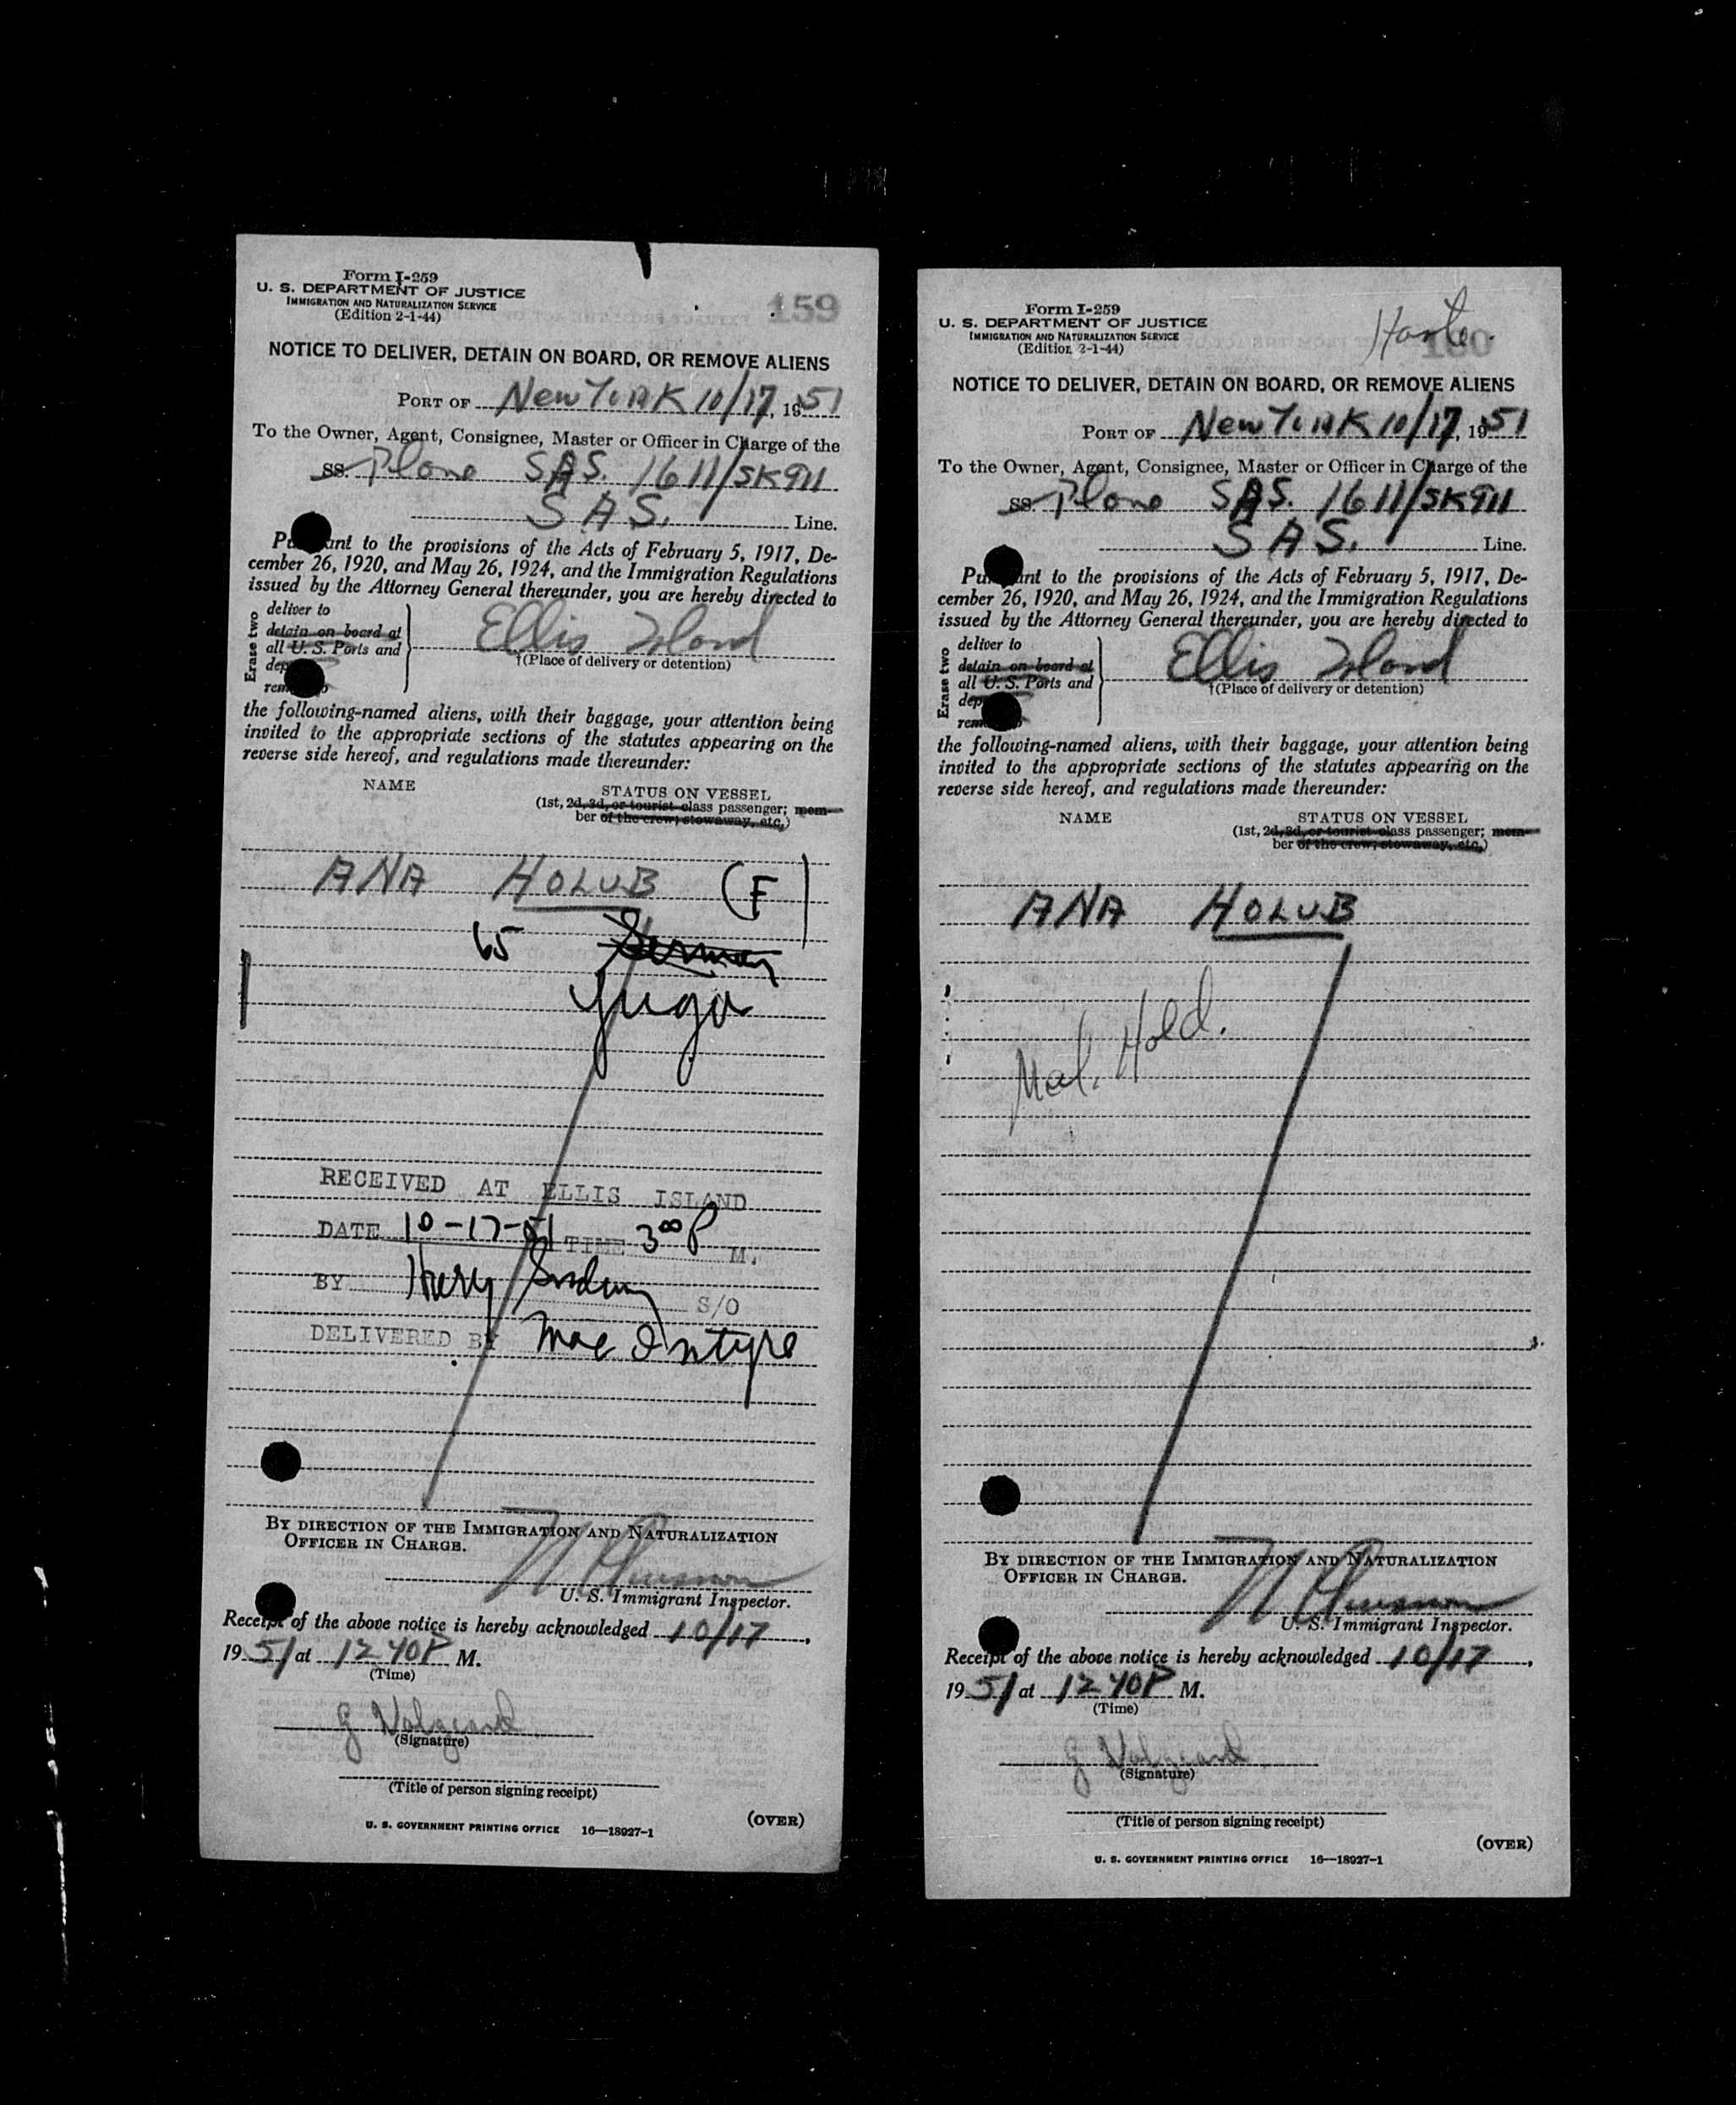 Form I-259
U. S. DEPARTMENT OF JUSTICE
IMMIGRATION AND NATURALIZATION SERVICE
(Edition 2-1-44)
159
NOTICE TO DELIVER, DETAIN ON BOARD, OR REMOVE ALIENS
PORT OF New YORK 10/17, 1951
To the Owner, Agent, Consignee, Master or Officer in Charge of the
SS. Plane SAS. 1611/SK911
SAS. Line.
Pursuant to the provisions of the Acts of February 5, 1917, De-
cember 26, 1920, and May 26, 1924, and the Immigration Regulations
issued by the Attorney General thereunder, you are hereby directed to
Erase two
deliver to
detain on board at
all U. S. Ports and
Ellis Island
†(Place of delivery or detention)
the following-named aliens, with their baggage, your attention being
invited to the appropriate sections of the statutes appearing on the
reverse side hereof, and regulations made thereunder:
NAME STATUS ON VESSEL
(1st, 2d, 3d, or tourist class passenger; mem-
ber of the crew; stowaway, etc.)
ANA HOLUB (F)
65 German
Yugo
RECEIVED AT ELLIS ISLAND
DATE 10-17-51 TIME 3 00 P M.
BY S/O
DELIVERED BY Mac Intyre
BY DIRECTION OF THE IMMIGRATION AND NATURALIZATION
OFFICER IN CHARGE.
U. S. Immigrant Inspector.
Receipt of the above notice is hereby acknowledged 10/17,
1951 at 12 40 P M.
(Time)
(Signature)
(Title of person signing receipt)
U. S. GOVERNMENT PRINTING OFFICE 16—18927-1
(OVER)
Form I-259
U. S. DEPARTMENT OF JUSTICE
IMMIGRATION AND NATURALIZATION SERVICE
(Edition 2-1-44)
160
NOTICE TO DELIVER, DETAIN ON BOARD, OR REMOVE ALIENS
PORT OF New YORK 10/17, 1951
To the Owner, Agent, Consignee, Master or Officer in Charge of the
SS. Plane SAS. 1611/SK911
SAS. Line.
Pursuant to the provisions of the Acts of February 5, 1917, De-
cember 26, 1920, and May 26, 1924, and the Immigration Regulations
issued by the Attorney General thereunder, you are hereby directed to
Erase two
deliver to
detain on board at
all U. S. Ports and
Ellis Island
†(Place of delivery or detention)
the following-named aliens, with their baggage, your attention being
invited to the appropriate sections of the statutes appearing on the
reverse side hereof, and regulations made thereunder:
NAME STATUS ON VESSEL
(1st, 2d, 3d, or tourist class passenger; mem-
ber of the crew; stowaway, etc.)
ANA HOLUB
Hold.
BY DIRECTION OF THE IMMIGRATION AND NATURALIZATION
OFFICER IN CHARGE.
U. S. Immigrant Inspector.
Receipt of the above notice is hereby acknowledged 10/17,
1951 at 12 40 P M.
(Time)
(Signature)
(Title of person signing receipt)
U. S. GOVERNMENT PRINTING OFFICE 16—18927-1
(OVER)